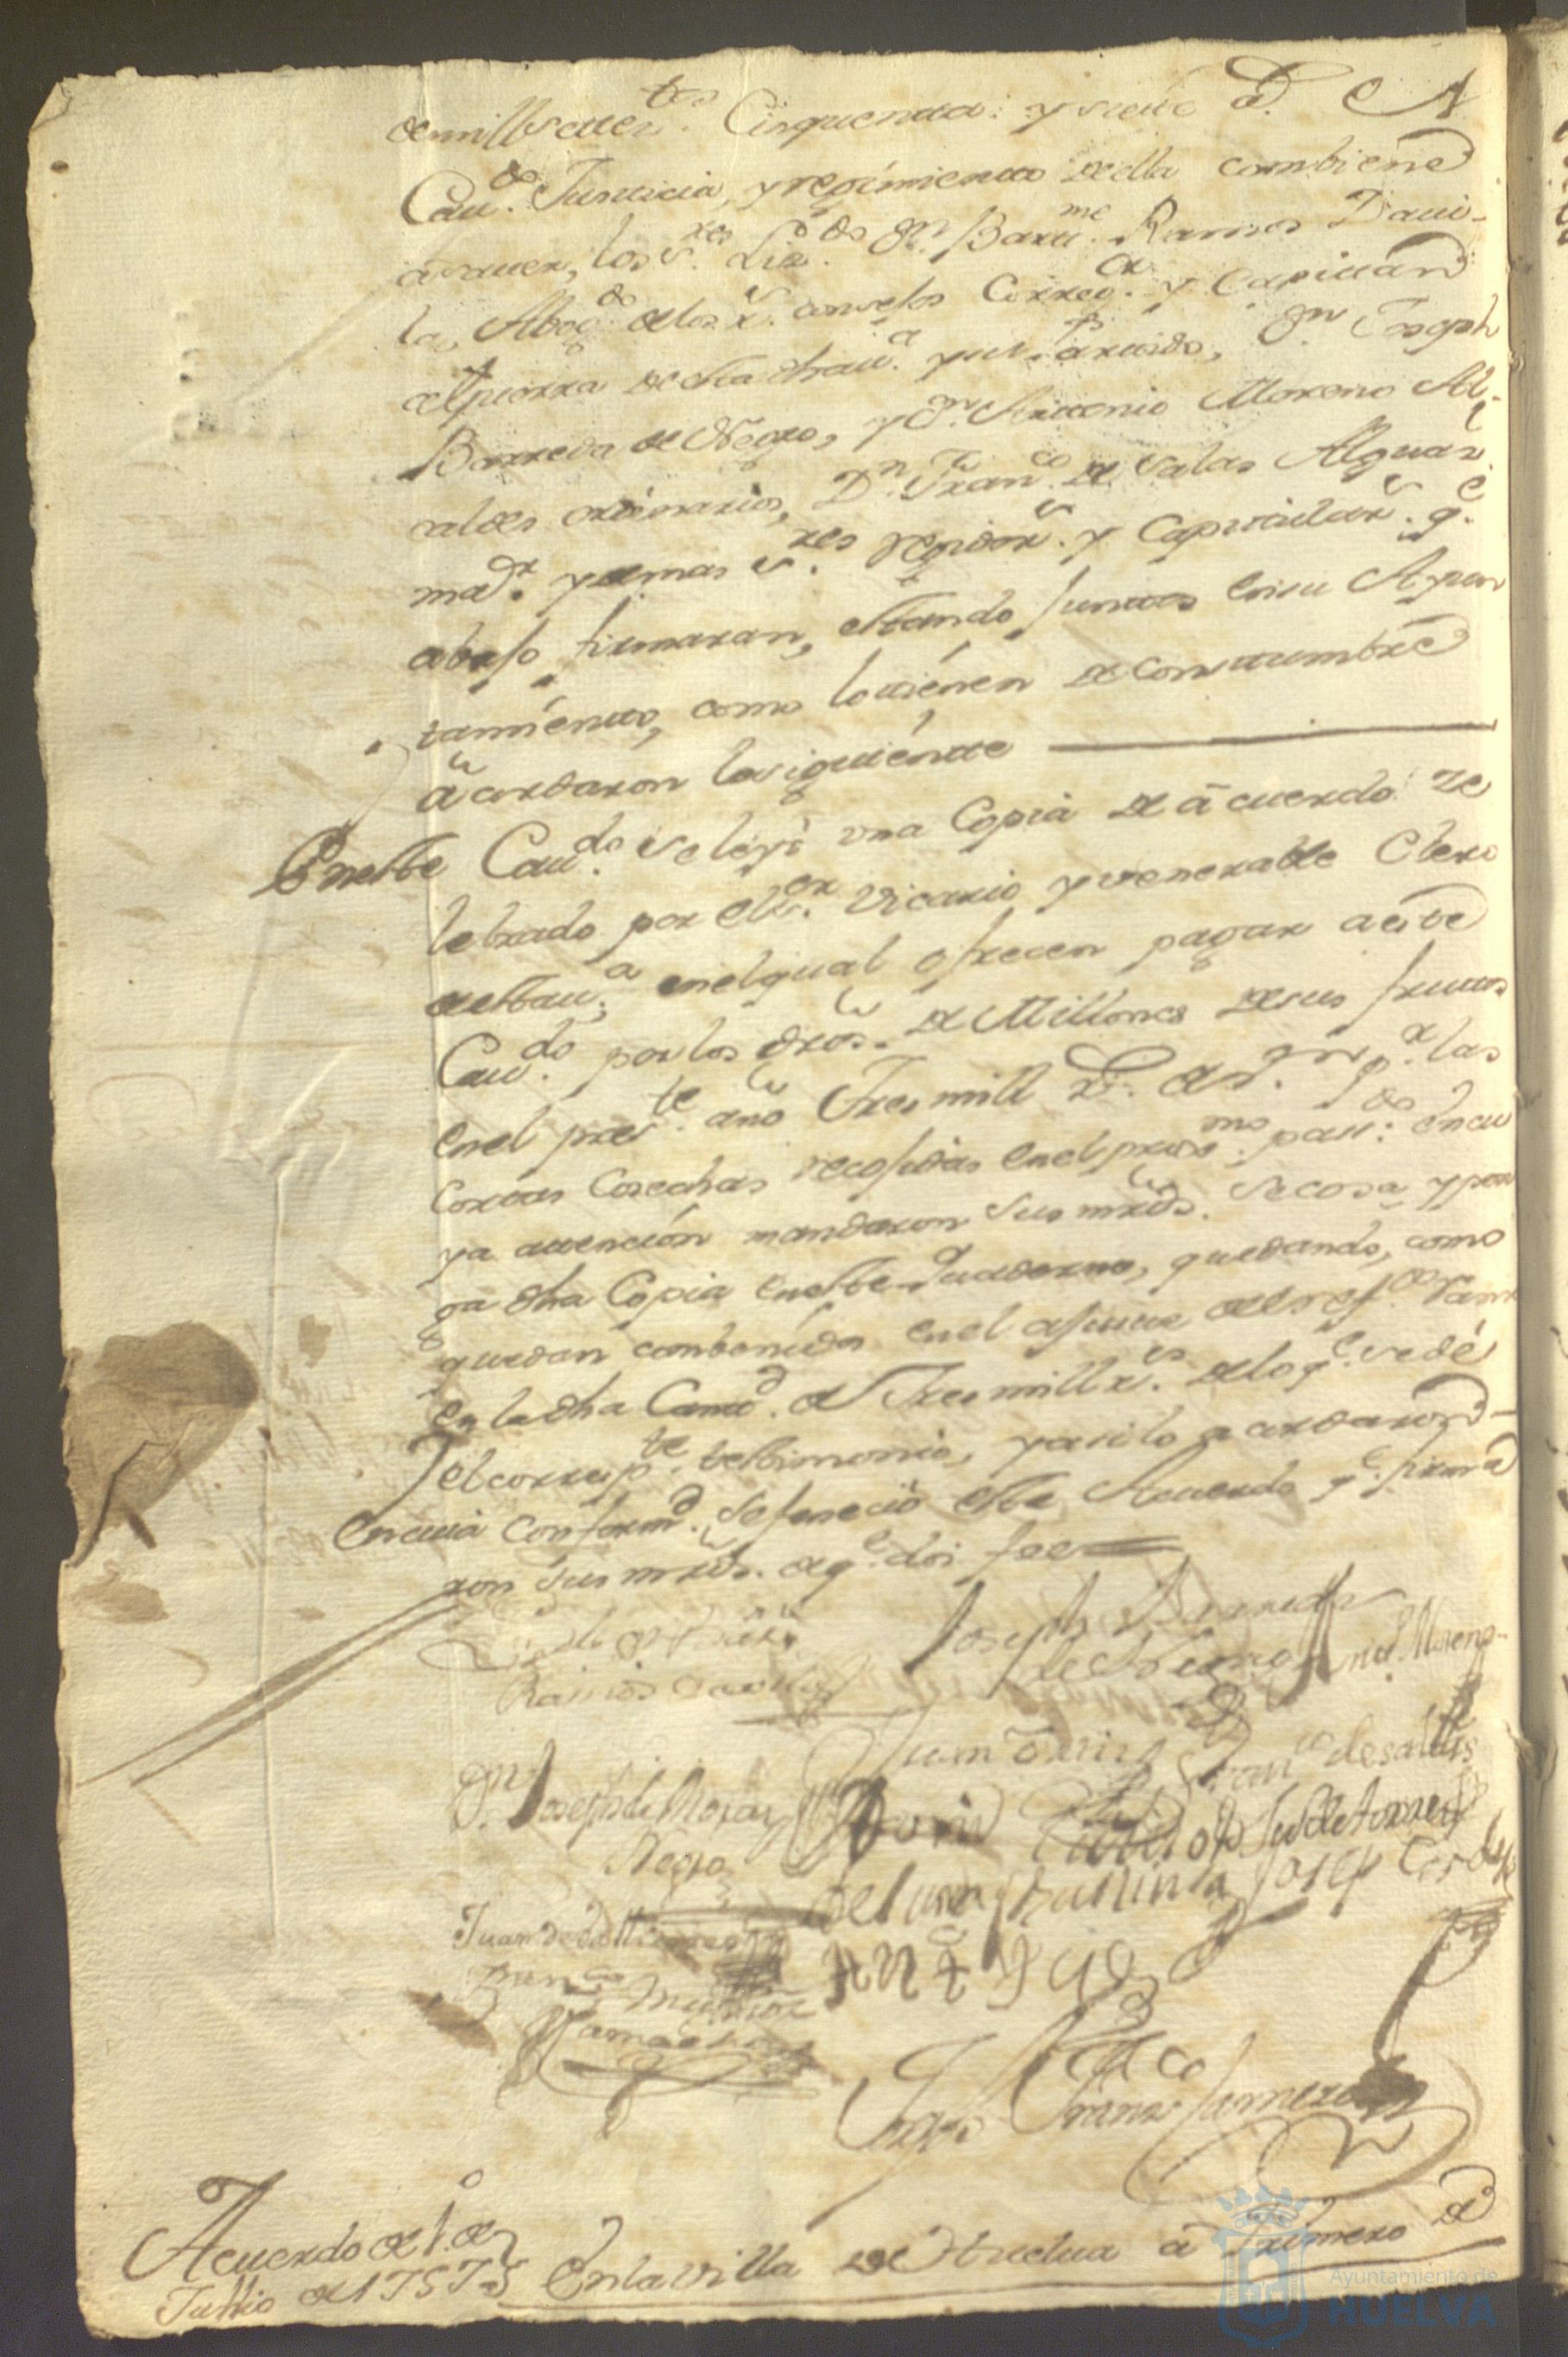 de mill setez.tos Cinquenta: y siete a.s el
Cau.do Justicia, y regimiento de ella combiene
a saver, los S.res Liz.do Dn. Barme. Ramos Davi-
la, Abog.do de los R.s consejos Correg.or y Capitan
a Guerra de esta dha Va. y su partido, Dn. Joseph
Barreda de Negro, y Dn. Antonio Moreno Al-
caldes ordinarios, Dn. Franco. de Salas Alguaz.l
maor. y demas S.res Regidor.s y Capitular.s q.e
abajo firmaran, estando juntos en su Ayun
tamiento, como lo tienen de constumbre
acordaron lo siguiente
En este Cau.do se leyó una Copia de acuerdo ze
lebrado por el S.or Vicario y venerable Clero
de esta V.a en el qual ofrecen pagar a este
Cau.do por los dros. de Millones de sus frutos
en el pres.te año Tres mill R.s de v.on p.r las
cortas Cosechas recojidas en el prox.mo pas.do en cu
ya atencion mandaron sus mrds. se cosa y pon
ga dha Copia en este quaderno, quedando, como
quedan combenidos en el ajuste del ref.do ramo
en la dha Cantd. de Tres mill r.s de lo q.e se dé
el corresp.te testimonio, y asi lo acordaron
en cuia conformd. se feneció este Acuerdo q.e firma
ron sus mrds. de q.e doi fee
Lizdo. Dn. Barme.
Ramos Davila
Joseph Barreda
de Negro
Antto. Moreno
Dn. Joseph de Mora
Negro
Juan
Franco. de Salas
de Torres
Josep Cordero
Juan de
Franco.
Camacho
Franco
Acuerdo de 1.o de
Jullio de 1757
En la villa de Huelva a Primero de
Ayuntamiento de
HUELVA